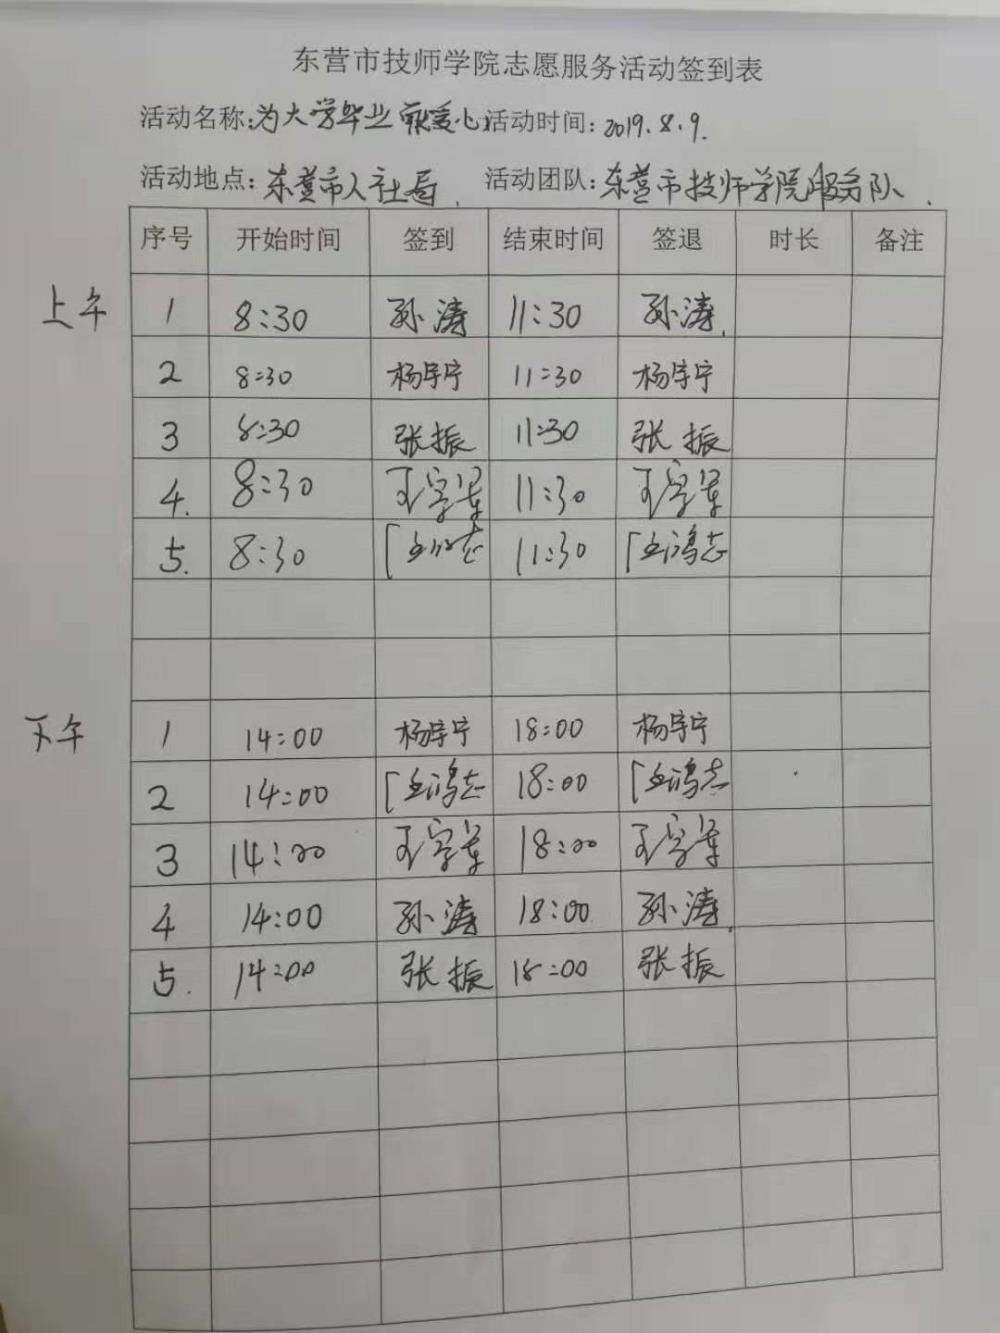 东营市技师学院志愿服务活动签到表
活动名称:为大学毕业献爱心 活动时间:2019.8.9.
活动地点:东营市人社局. 活动团队:东营市技师学院服务队.
序号 开始时间 签到 结束时间 签退 时长 备注
上午 1 8:30 孙涛 11:30 孙涛
2 8:30 杨宇宁 11:30 杨宇宁
3 8:30 张振 11:30 张振
4. 8:30 王 11:30 王
5. 8:30 11:30 鸿志
下午 1 14:00 杨宇宁 18:00 杨宇宁
2 14:00 鸿志 18:00 鸿志
3 14:00 王 18:00 王
4 14:00 孙涛 18:00 孙涛
5. 14:00 张振 18:00 张振